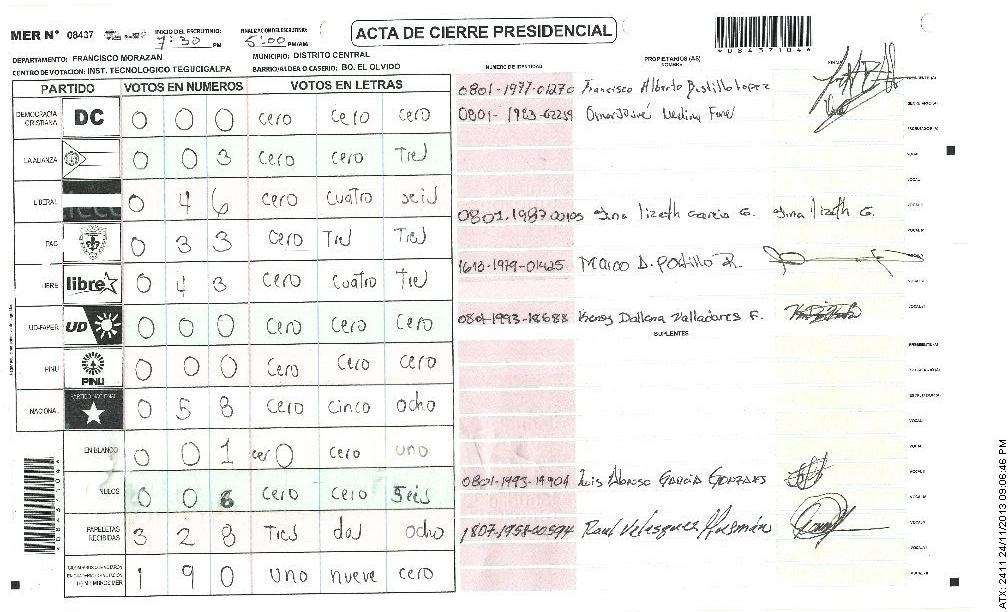 MER N° 08437 INICIO DEL ESCRUTINIO: 7:30 PM FINALIZACION DEL ESCRUTINIO: 5:00 PM/AM
ACTA DE CIERRE PRESIDENCIAL
DEPARTAMENTO: FRANCISCO MORAZAN MUNICIPIO: DISTRITO CENTRAL
CENTRO DE VOTACION: INST. TECNOLOGICO TEGUCIGALPA BARRIO/ALDEA O CASERIO: BO. EL OLVIDO
PARTIDO VOTOS EN NUMEROS VOTOS EN LETRAS
DEMOCRACIA CRISTIANA DC 0 0 0 cero cero cero
LA ALIANZA 0 0 3 cero cero Tres
LIBERAL 0 4 6 cero cuatro seis
PAC 0 3 3 cero Tres Tres
LIBRE libre 0 4 3 cero cuatro Tres
UD-FAPER UD 0 0 0 cero cero cero
PINU PINU 0 0 0 cero cero cero
NACIONAL PARTIDO NACIONAL 0 5 8 cero cinco ocho
EN BLANCO 0 0 1 cero cero uno
NULOS 0 0 6 cero cero Seis
PAPELETAS RECIBIDAS 3 2 8 Tres dos ocho
1 9 0 uno nueve cero
NUMERO DE IDENTIDAD PROPIETARIOS (AS) NOMBRE FIRMA
0801-1977-01270 Francisco Alberto Bustillo Lopez
0801-1983-02239 Omar Josué Medina
0801-1987-00105 Gina lizeth Garcia G. Gina lizeth G.
1613-1979-01425 Marco D. Portillo R.
0801-1993-18688 Kensy Dallana Valladares F.
SUPLENTES
0801-1993-14904 Luis Alonso Garcia Gonzales
1807-1958-00574 Raul Velasquez Guzmán
ATX: 2411 24/11/2013 09:06:46 PM